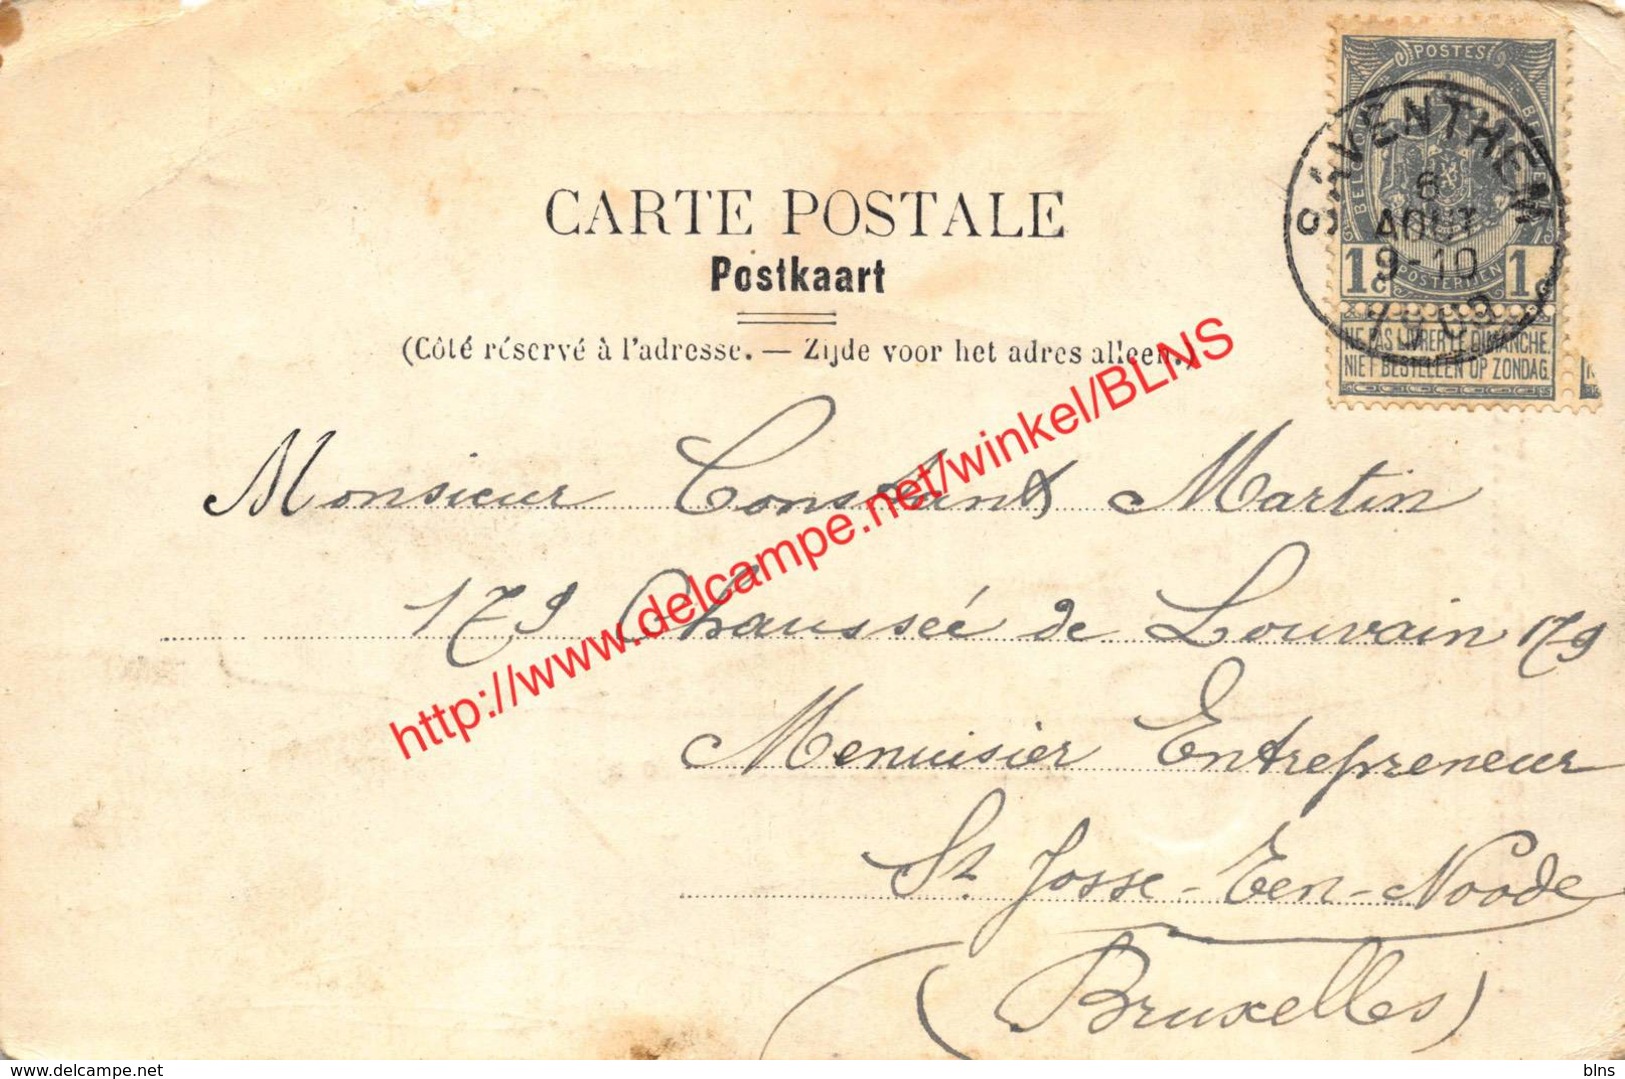 POSTES
BELGIQUE
SAVENTHEM
6
AOUT
9-10
1c POSTERIJEN 1c
NE PAS LIVRER LE DIMANCHE.
NIET BESTELLEN OP ZONDAG.
CARTE POSTALE
Postkaart
(Côté réservé à l'adresse. — Zijde voor het adres alleen.)
http://www.delcampe.net/winkel/BLNS
Monsieur Constant Martin
179 Chaussée de Louvain 179
Menuisier Entrepreneur
St Josse-Een-Noode
(Bruxelles)
www.delcampe.net
blns